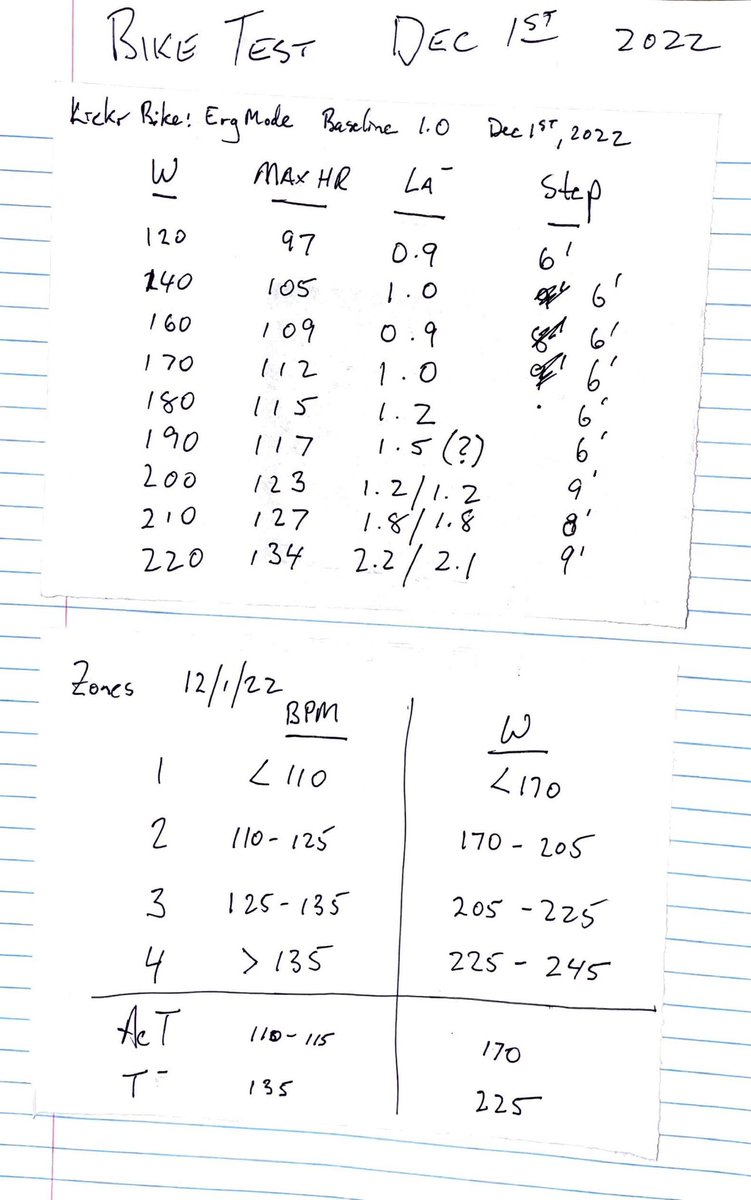 BIKE TEST DEC 1ST 2022
Kickr Bike: Erg Mode Baseline 1.0 Dec 1ST, 2022
W MAX HR LA⁻ Step
120 97 0.9 6'
140 105 1.0 6'
160 109 0.9 6'
170 112 1.0 6'
180 115 1.2 6'
190 117 1.5 (?) 6'
200 123 1.2/1.2 9'
210 127 1.8/1.8 8'
220 134 2.2/2.1 9'
Zones 12/1/22
BPM W
1 < 110 <170
2 110-125 170 - 205
3 125-135 205 - 225
4 > 135 225 - 245
AeT 110-115 170
T⁻ 135 225